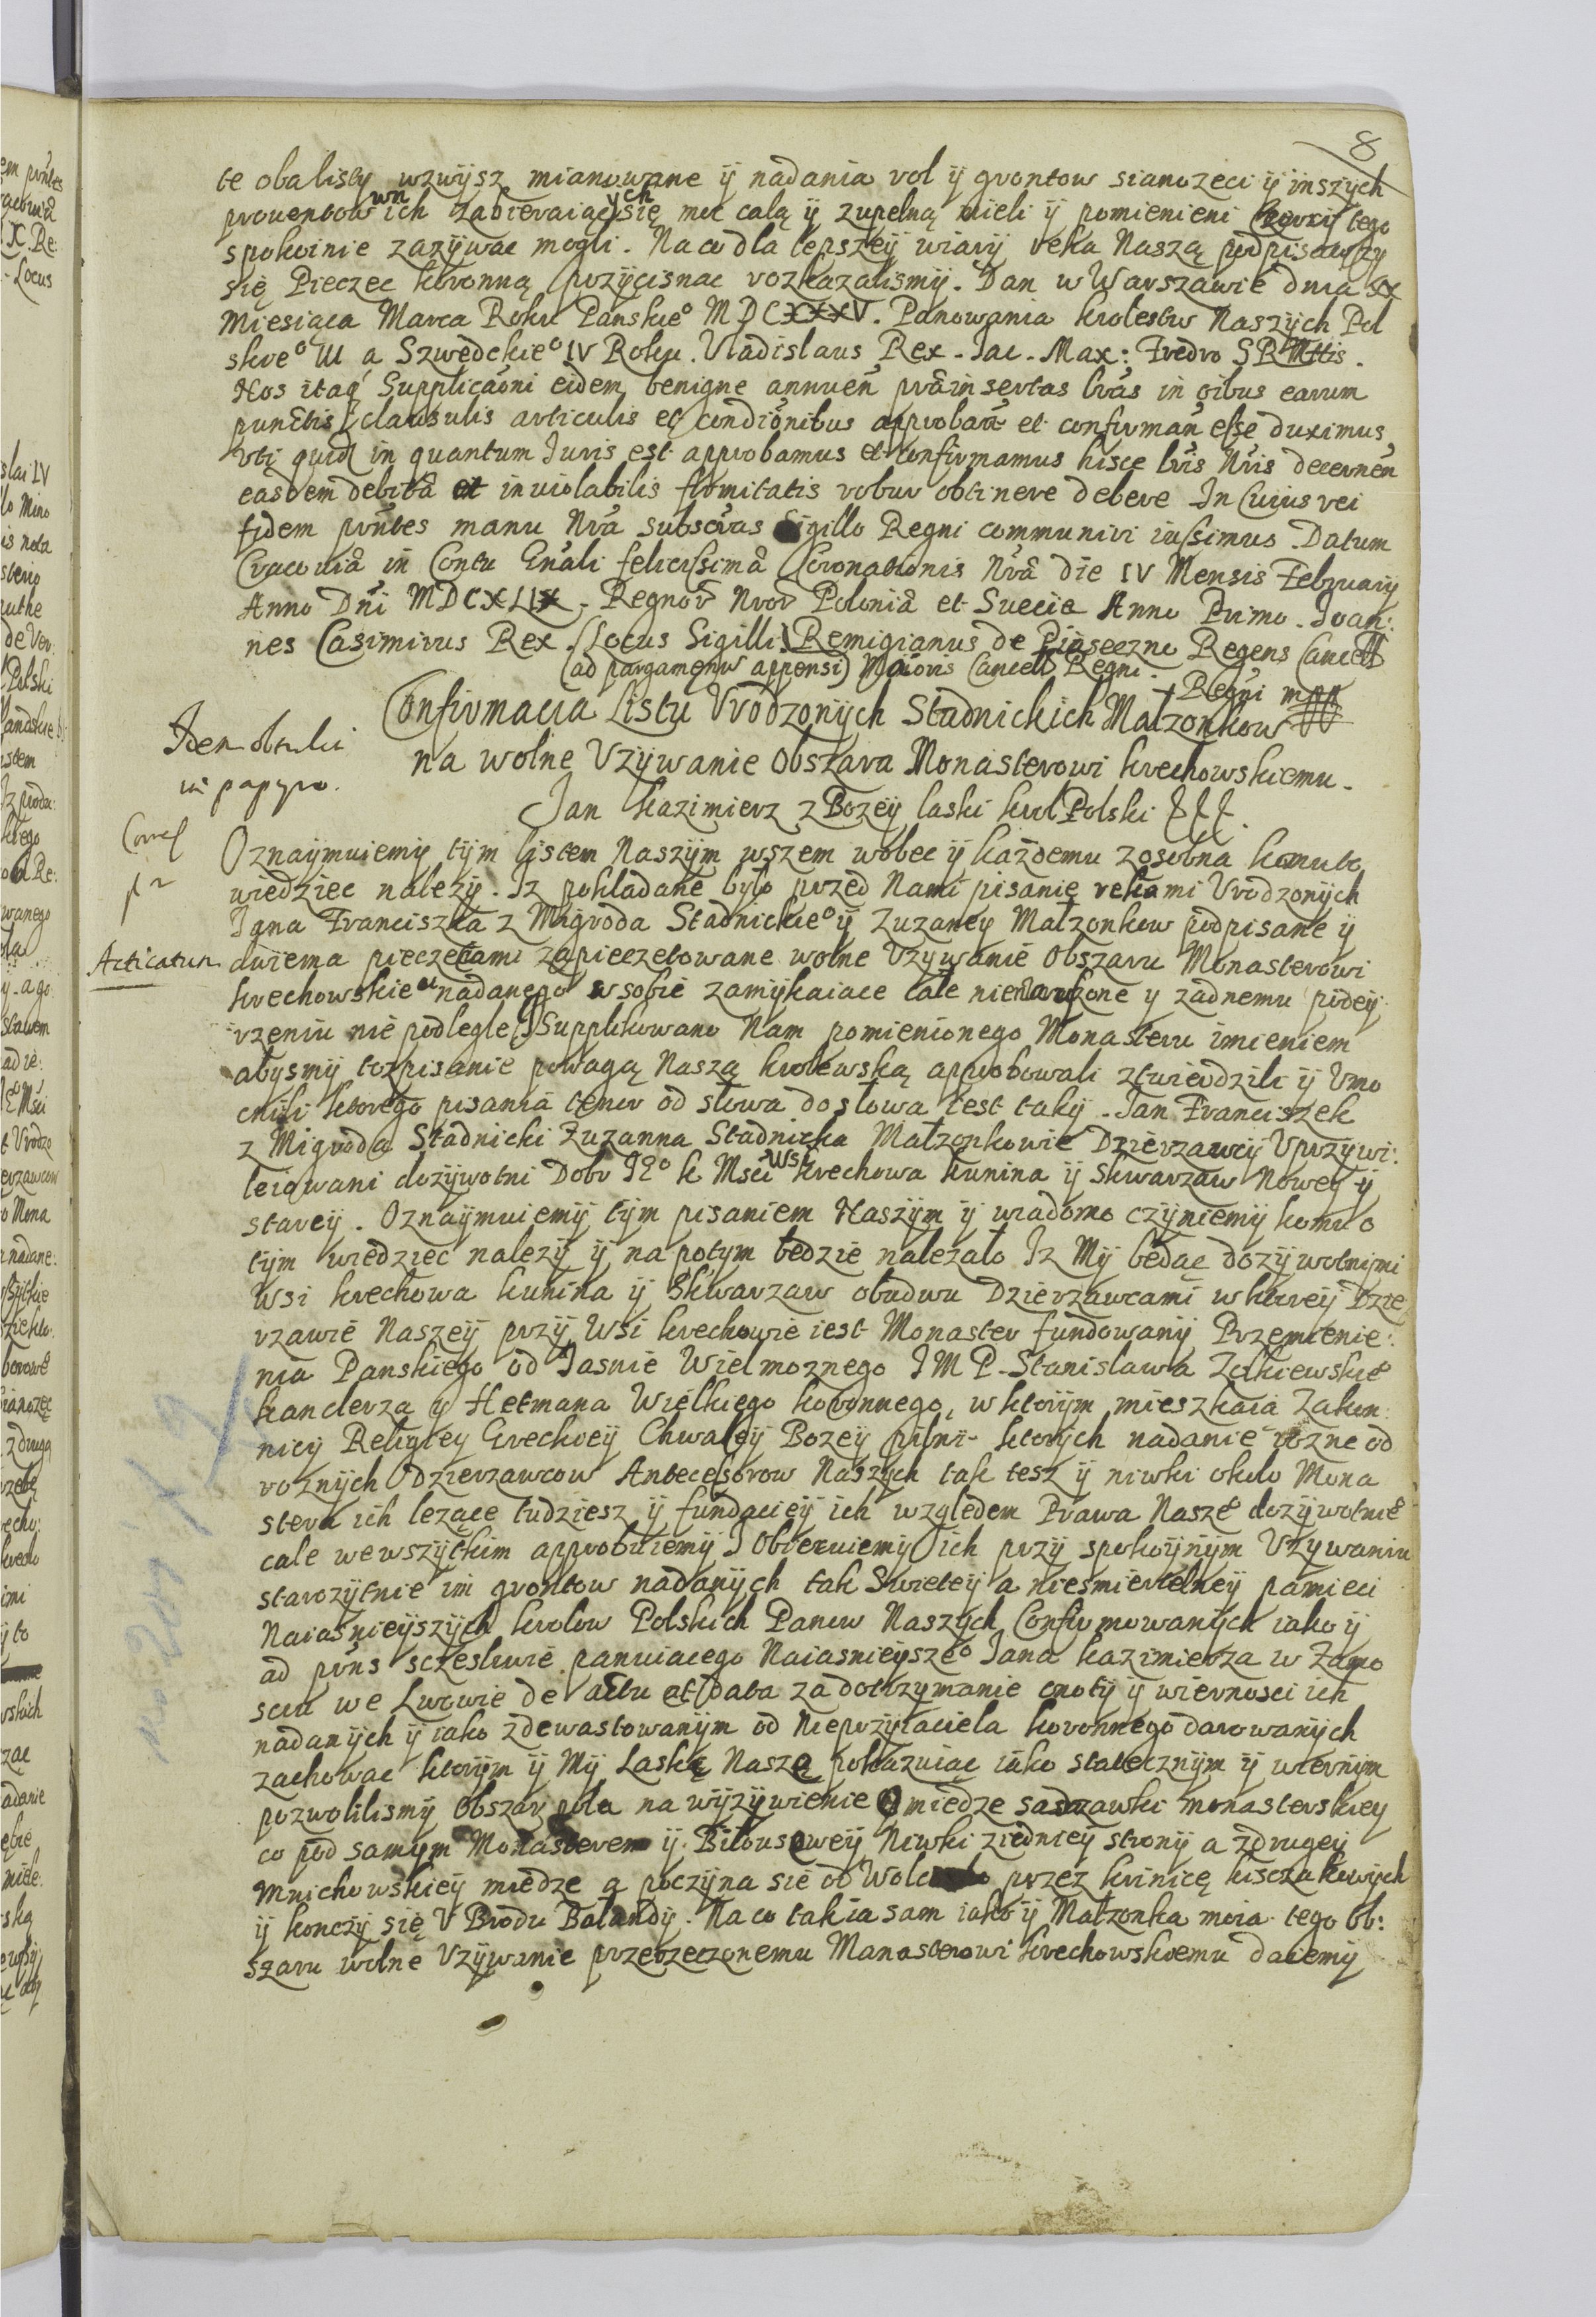 8
te oba listy wzwÿsz mianowane ÿ nadania rol ÿ grontow sianozeci ÿ inszych
prouentow wn ich zabieraiąc ych się moc całą ÿ zupełną mieli ÿ pomienieni tego
spokoinie zazÿwac mogli. Na co dla lepszeÿ wiarÿ reką Naszą podpisawszy
się Pieczec koronną przÿcisnac rozkazalismÿ. Dan w Warszawie dnia XX
Miesiąca Marca Roku Panskieo MDCXXXV. Panowania krolestw Naszÿch Pol
skieo III a Szwedckieo IV Roku. Vladislaus Rex. Jac. Max: Fredro SRMttis.
Nos itaq Supplicaoni eidem benigne annuen prainsertas lras in oibus earum
punctis clausulis articulis et condionibus approban et confirman esse duximus
vti quid in quantum Iuris est approbamus et confirmamus hisce lris Nris decernen
easdem debita et inuiolabilis firmitatis robur obtinere debere In Cuius rei
fidem prntes manu Nra subscras Sigillo Regni communiri iussimus. Datum
Cracouia in Contu Gnali felicissima Coronationis Nra die IV Mensis Februarÿ
Anno Dni MDCXLIX. Regnor Nror Polonia et Suecie Anno Primo. Ioan:
nes Casimirus Rex. (Locus Sigilli) Remigianus de Piaseczno Regens Cancell
(ad pargamenu appensi) Maioris Cancell Regni. Regni mpp
Confirmacia Listu Vrodzonÿch Stadnickich Małzonkow
na wolne Vzÿwanie Obszara Monasterowi krechowskiemu.
Item oblulit
in papyro.
Jan Kazimierz z Bozeÿ laski krol Polski &&&.
Corr
Oznaÿmuiemÿ tÿm listem Naszÿm wszem wobec ÿ każdemu zosobna komu to
wiedziec nalezÿ. Iz pokładane było przed Nami pisanie rekami Vrodzonÿch
Jana Franciszka z Migroda Stadnickieo ÿ Zuzaney Małzonkow podpisane ÿ
Acticatum
dwiema pieczetami zapieczetowane wolne Vzywanie Obszaru Monasterowi
krechowskieu nadanego w sobie zamÿkaiace cale nienaruszone y zadnemu podeÿ
rzeniu nie podlegle I Supplikowano Nam pomienionego Monasteru imieniem
abysmÿ toz pisanie powagą Naszą krolewską approbowali ztwierdzili ÿ Vmo
cnili ktorego pisania tenor od słowa do słowa iest takÿ. Jan Franciszek
z Migroda Stadnicki Zuzanna Stadnicka Małzonkowie Dzierzawcÿ Vprzÿwi:
leiowani dozÿwotni Dobr Jeo k Msci Wsi krechowa kunina ÿ Skwarzaw Noweÿ ÿ
stareÿ. Oznaÿmuiemÿ tÿm pisaniem Naszÿm ÿ wiadomo czÿniemÿ komu o
tÿm wiedziec nalezÿ ÿ na potym bedzie nalezało Iz Mÿ bedąc dozÿwotnÿmi
Wsi krechowa kunina ÿ Skwarzaw obudwu Dzierzawcami w ktoreÿ Dzie
rzawie Naszeÿ przÿ Wsi krechowie iest Monaster fundowanÿ Przemienie:
nia Panskiego od Jasnie Wielmoznego IMP. Stanislawa Zołkiewskie
kanclerza y Hetmana Wielkiego koronnego, w ktorÿm mieszkaia Zakon
nicÿ Religieÿ Greckieÿ Chwałÿ Bozeÿ pilni. ktorÿch nadanie rozne od
roznÿch Odzierzawcow Antecessorow Naszÿch tak tesz ÿ niwki okolo Mona
stera ich lezące tudziesz ÿ fundacieÿ ich względem Prawa Nasze dozÿwotnie
cale we wszÿtkim approbuiemÿ I Obiecuiemÿ ich przÿ spokoÿnÿm Vzywaniu
starozÿtnie im grontow nadanÿch tak Swieteÿ a niesmiertelneÿ pamieci
Naiasnieÿszÿch krolow Polskich Panow Naszÿch Confirmowanÿch iako ÿ
ad prns sczesliwie panuiacego Naiasnieÿszeo Jana kazimierza w Zamo
sciu we Lwowie de actu et Data za dotrzymanie cnotÿ ÿ wiernosci ich
nadanÿch ÿ iako zdewastowanÿm od Nieprzÿiaciela koronnego darowanÿch
zachowac ktorÿm ÿ Mÿ Laskę Naszą pokazuiąc iako statecznÿm ÿ wiernÿm
pozwolilismÿ Obszar pola na wÿzÿwienie O miedze sadzawki monasterskieÿ
co pod samym Monasterem ÿ Biłousoweÿ Niwki ziedneÿ stronÿ a zdrugeÿ
Mnichowskieÿ miedze a poczÿna sie od przez krinicę kisczakowÿch
ÿ konczÿ się V Brodu Bałandÿ. Na co tak ia sam iako ÿ Małzonka moia tego Ob:
szaru wolne Vzÿwanie przerzeczonemu Manasterowi krechowskiemu daiemÿ